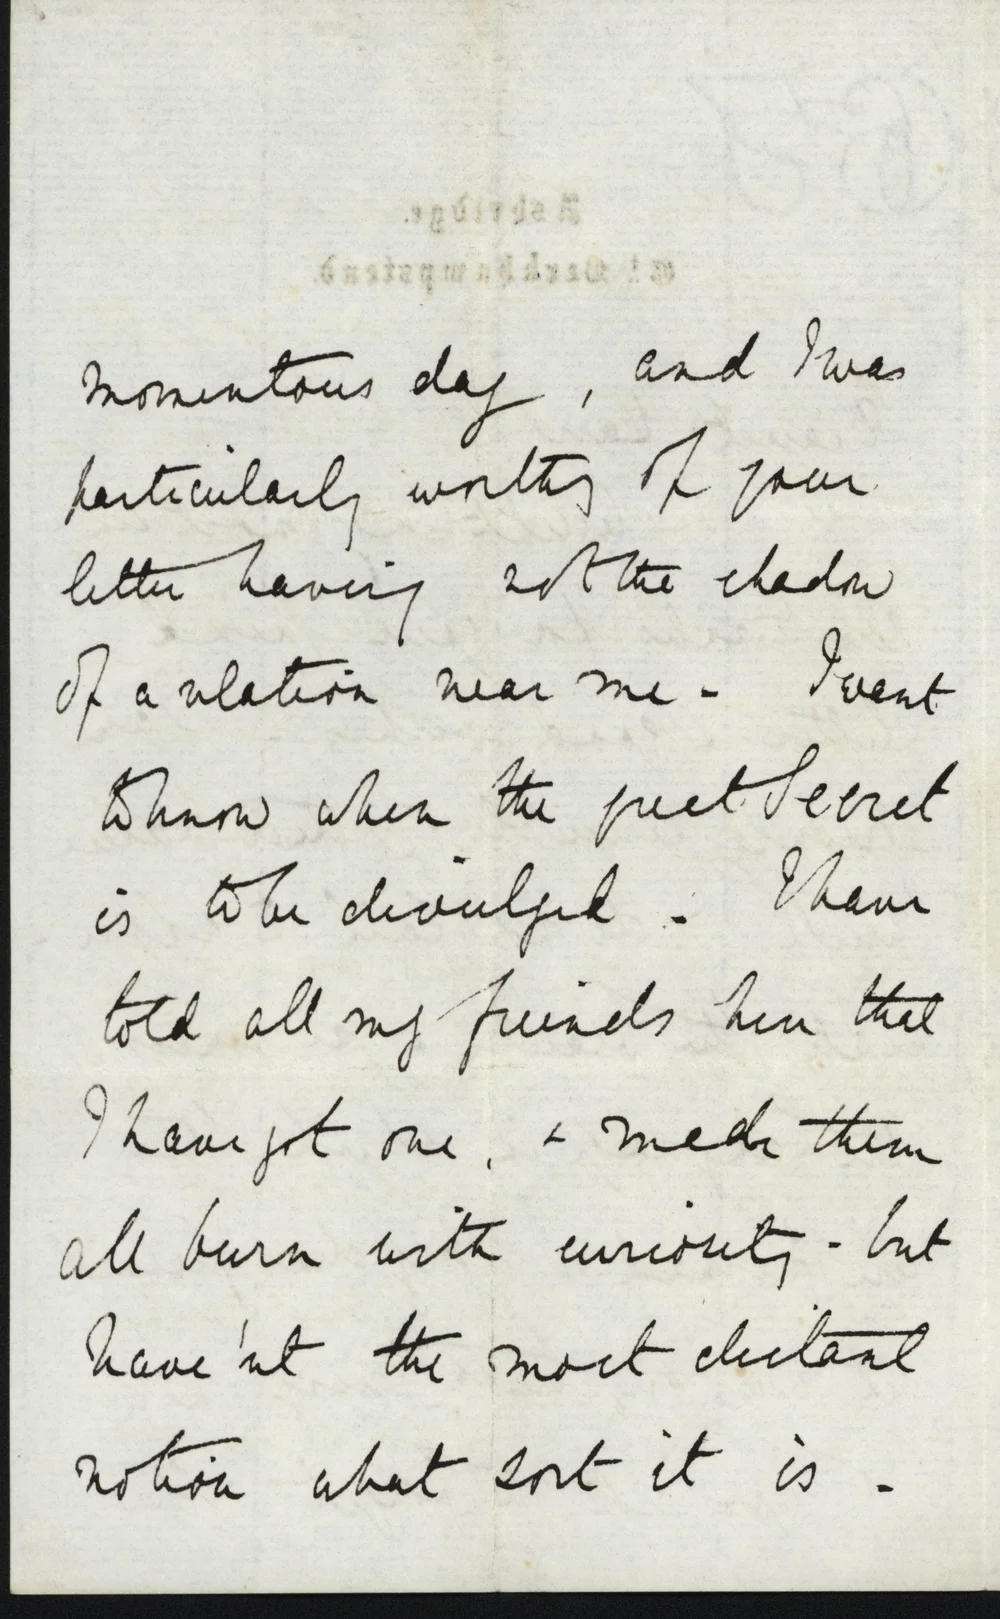 Ashridge.
Gt. Berkhampstead.
momentous day, and I was
particularly worthy of your
letter having not the shadow
of a relation near me - I want
to know when the great Secret
is to be divulged. I have
told all my friends here that
I have got one, & made them
all burn with curiosity - but
have'nt the most distant
notion what sort it is -